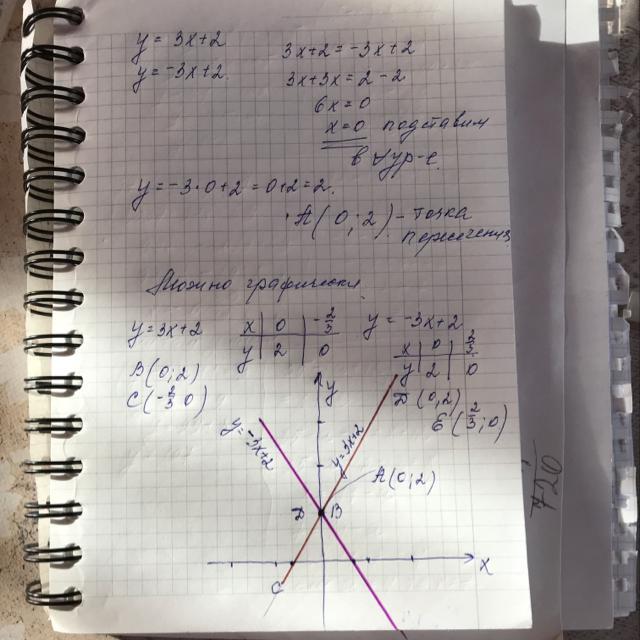 y = 3x+2
y = -3x+2.
3x+2 = -3x+2
3x+3x = 2-2
6x = 0
x = 0 подставим
в ур-е.
y = -3·0+2 = 0+2 = 2.
A(0;2) - точка
пересечения
Можно графически.
y = 3x+2
x | 0 | -2/3
y | 2 | 0
B(0;2)
C(-2/3 0)
y = -3x+2
x | 0 | 2/3
y | 2 | 0
D(0,2)
E(2/3;0)
y
y=-3x+2
y=3x+2
A(0;2)
D B
x
C
720